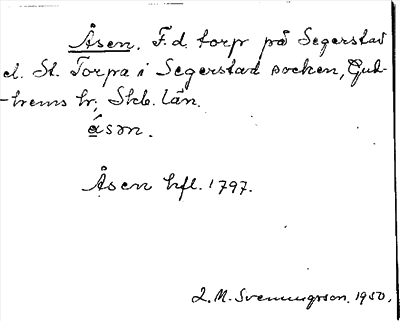 Åsen. F.d. torp på Segerstad
el. St. Torpa i Segerstad socken, Gud-
-hems hr, Skb. län.
ǻsən.
Åsen hfl. 1797.
L. M. Svenungsson. 1950.